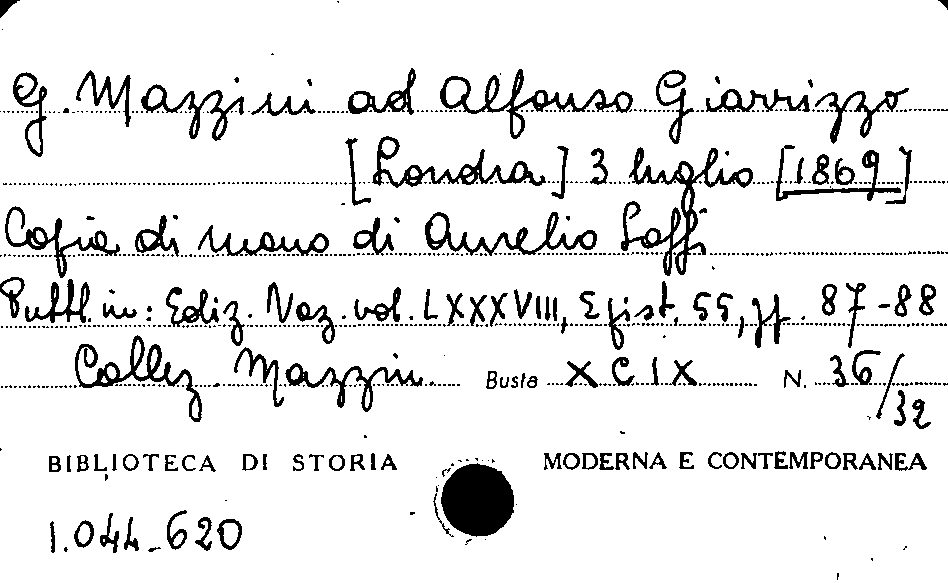 G. Mazzini ad Alfonso Giarrizzo
[Londra] 3 luglio [1869]
Copia di mano di Aurelio Saffi
Pubbl. in: Ediz. Naz. vol. LXXXVIII, Epist. 55, pp. 87-88
Collez. Mazzini Busta XCIX N. 36/32
BIBLIOTECA DI STORIA MODERNA E CONTEMPORANEA
1.044-620